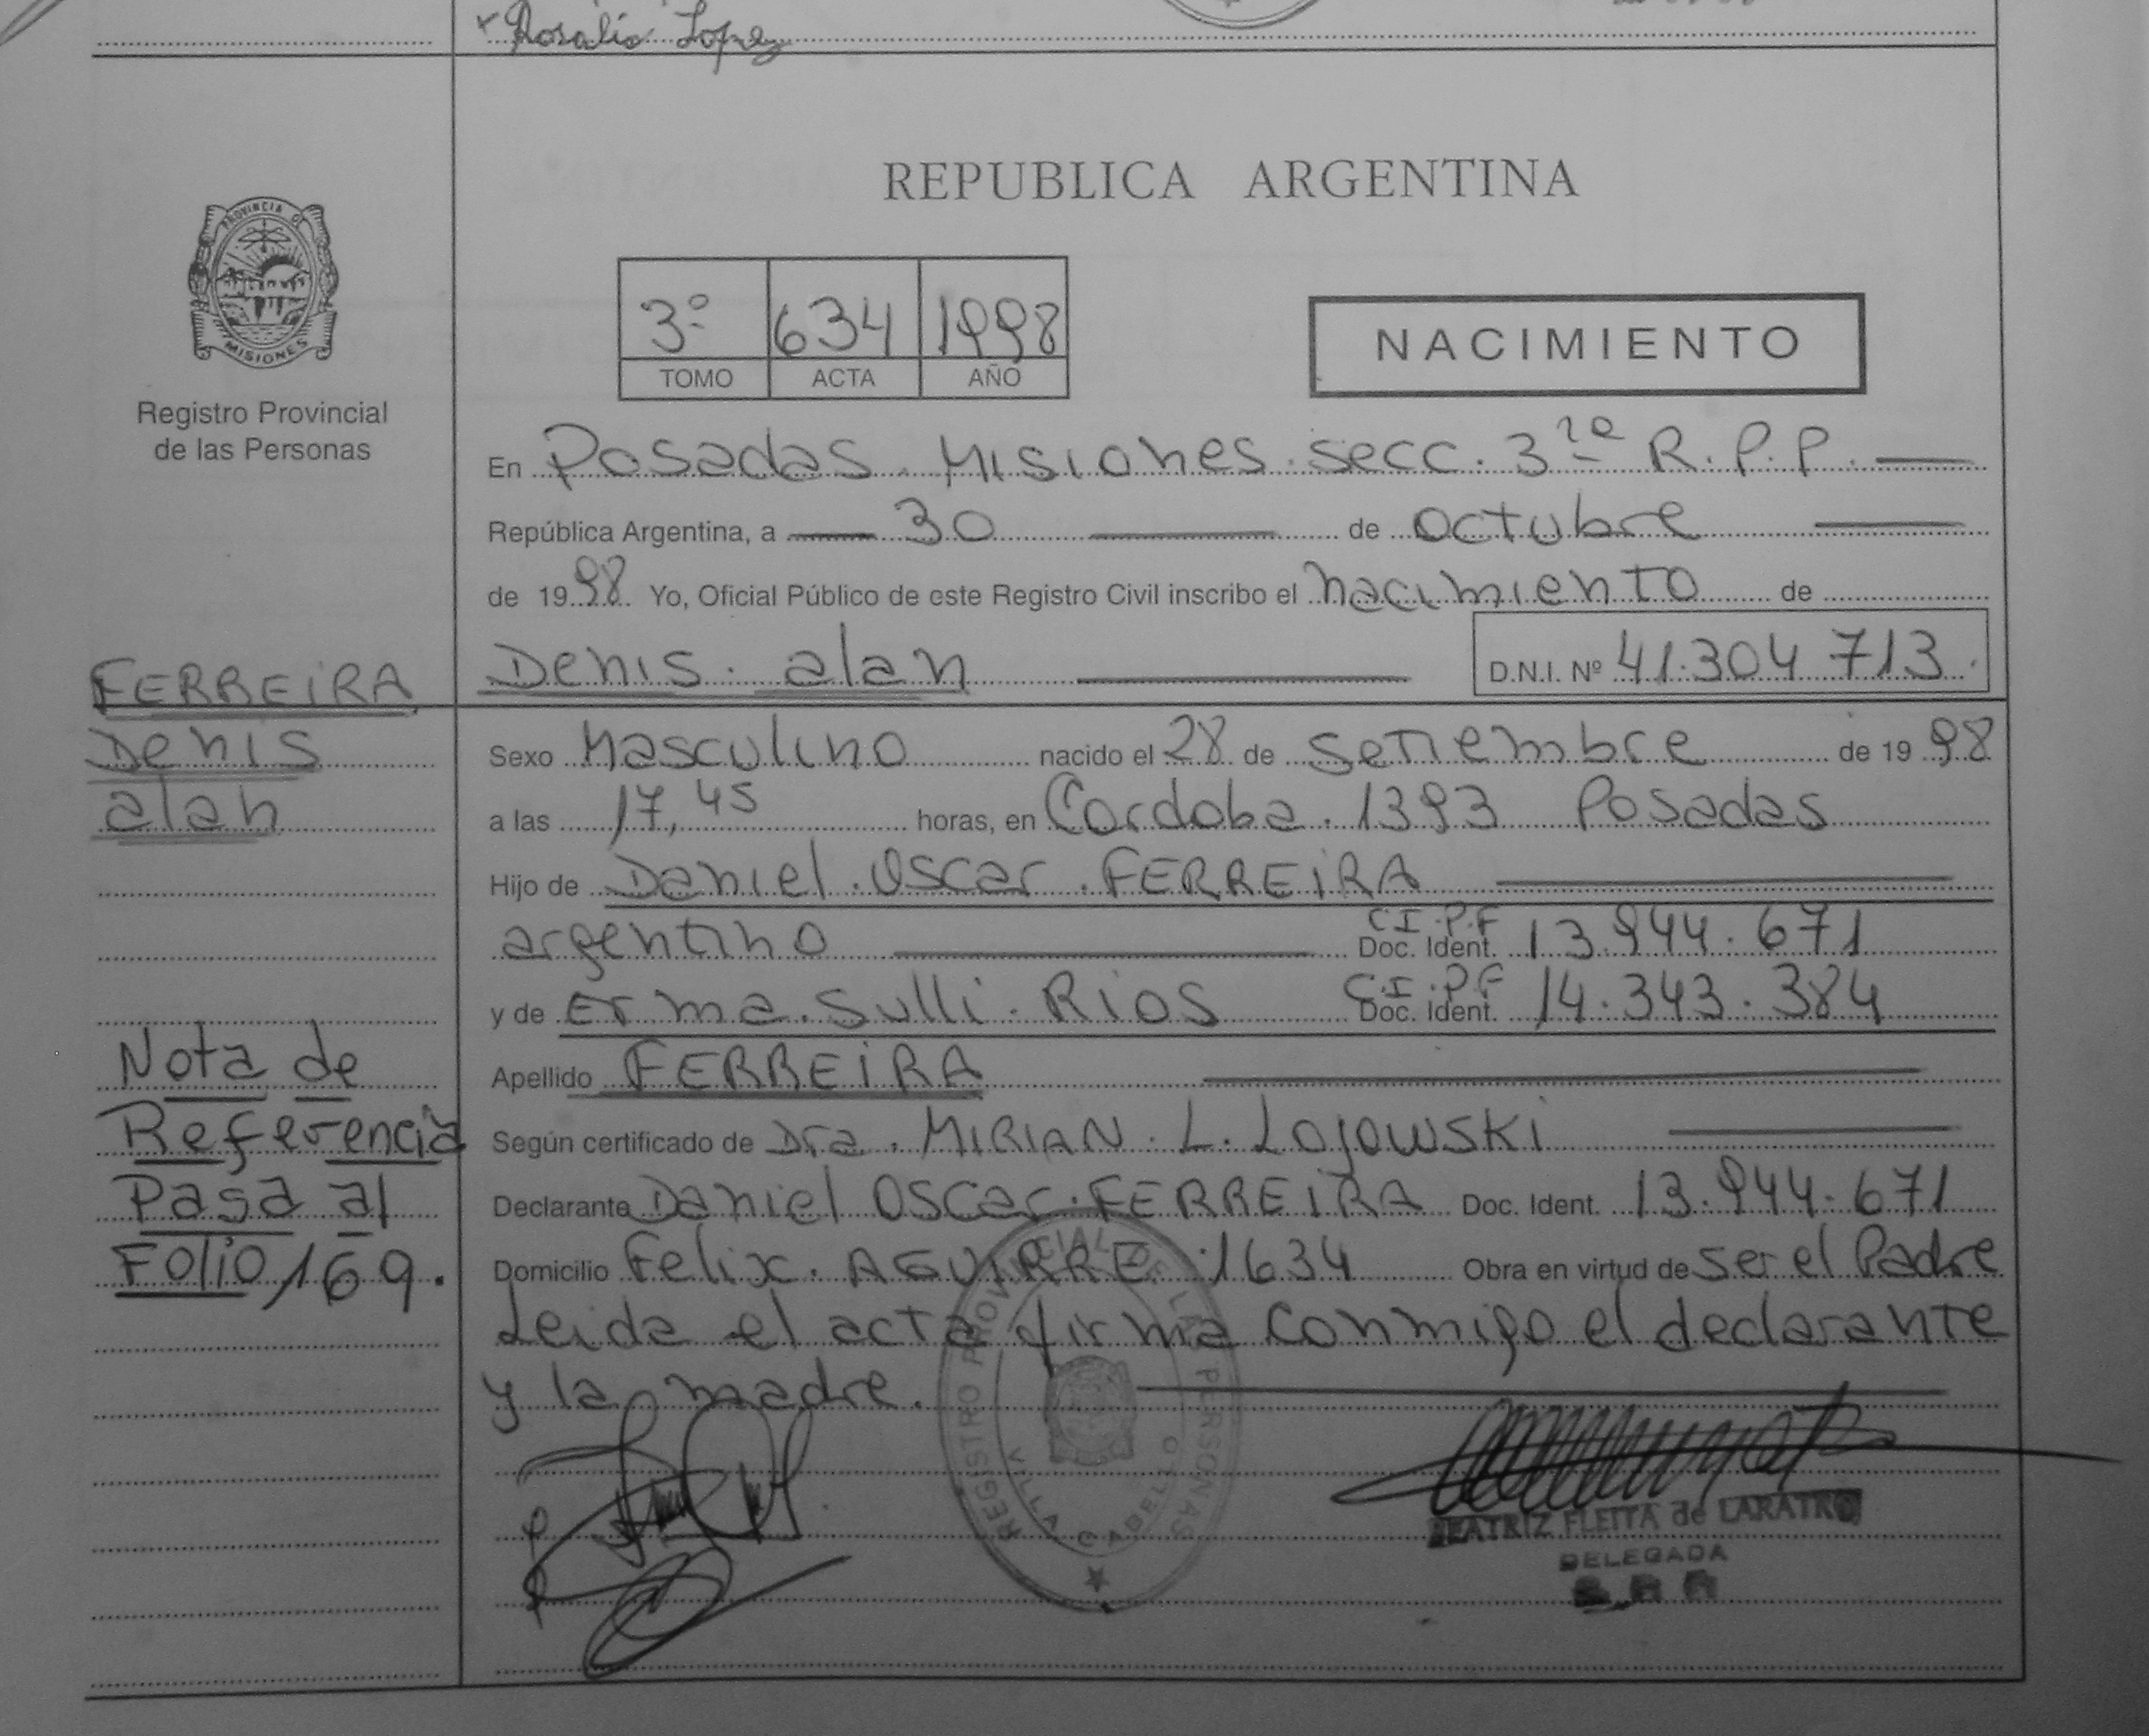 Rosalia Lopez
REPUBLICA ARGENTINA
PROVINCIA DE
MISIONES
Registro Provincial
de las Personas
3º 634 1998
TOMO ACTA AÑO
NACIMIENTO
En Posadas. Misiones. secc. 3ra R.P.P.
República Argentina, a 30 de octubre
de 1998 Yo, Oficial Público de este Registro Civil inscribo el nacimiento de
Denis. alan D.N.I. Nº 41.304 713.
FERREIRA
Denis
alan
Sexo Masculino nacido el 28 de setiembre de 1998
a las 17,45 horas, en Cordoba. 1393 Posadas
Hijo de Daniel. Oscar. FERREIRA
argentino C.I.P.F Doc. Ident. 13.944.671
y de Erma. Sulli. Rios C.I.P.F Doc. Ident. 14.343.384
Apellido FERREIRA
Según certificado de Dra. MIRIAN. L. Lojowski
Declarante Daniel Oscar. FERREIRA Doc. Ident. 13.944.671
Domicilio Felix. AGUIRRE 1634 Obra en virtud de ser el Padre
Leida el acta firma conmigo el declarante
y la madre.
Nota de
Referencia
Pasa al
Folio 169.
REGISTRO PROVINCIAL DE LAS PERSONAS
VILLA CABELLO
BEATRIZ FLEITA de LARATRO
DELEGADA